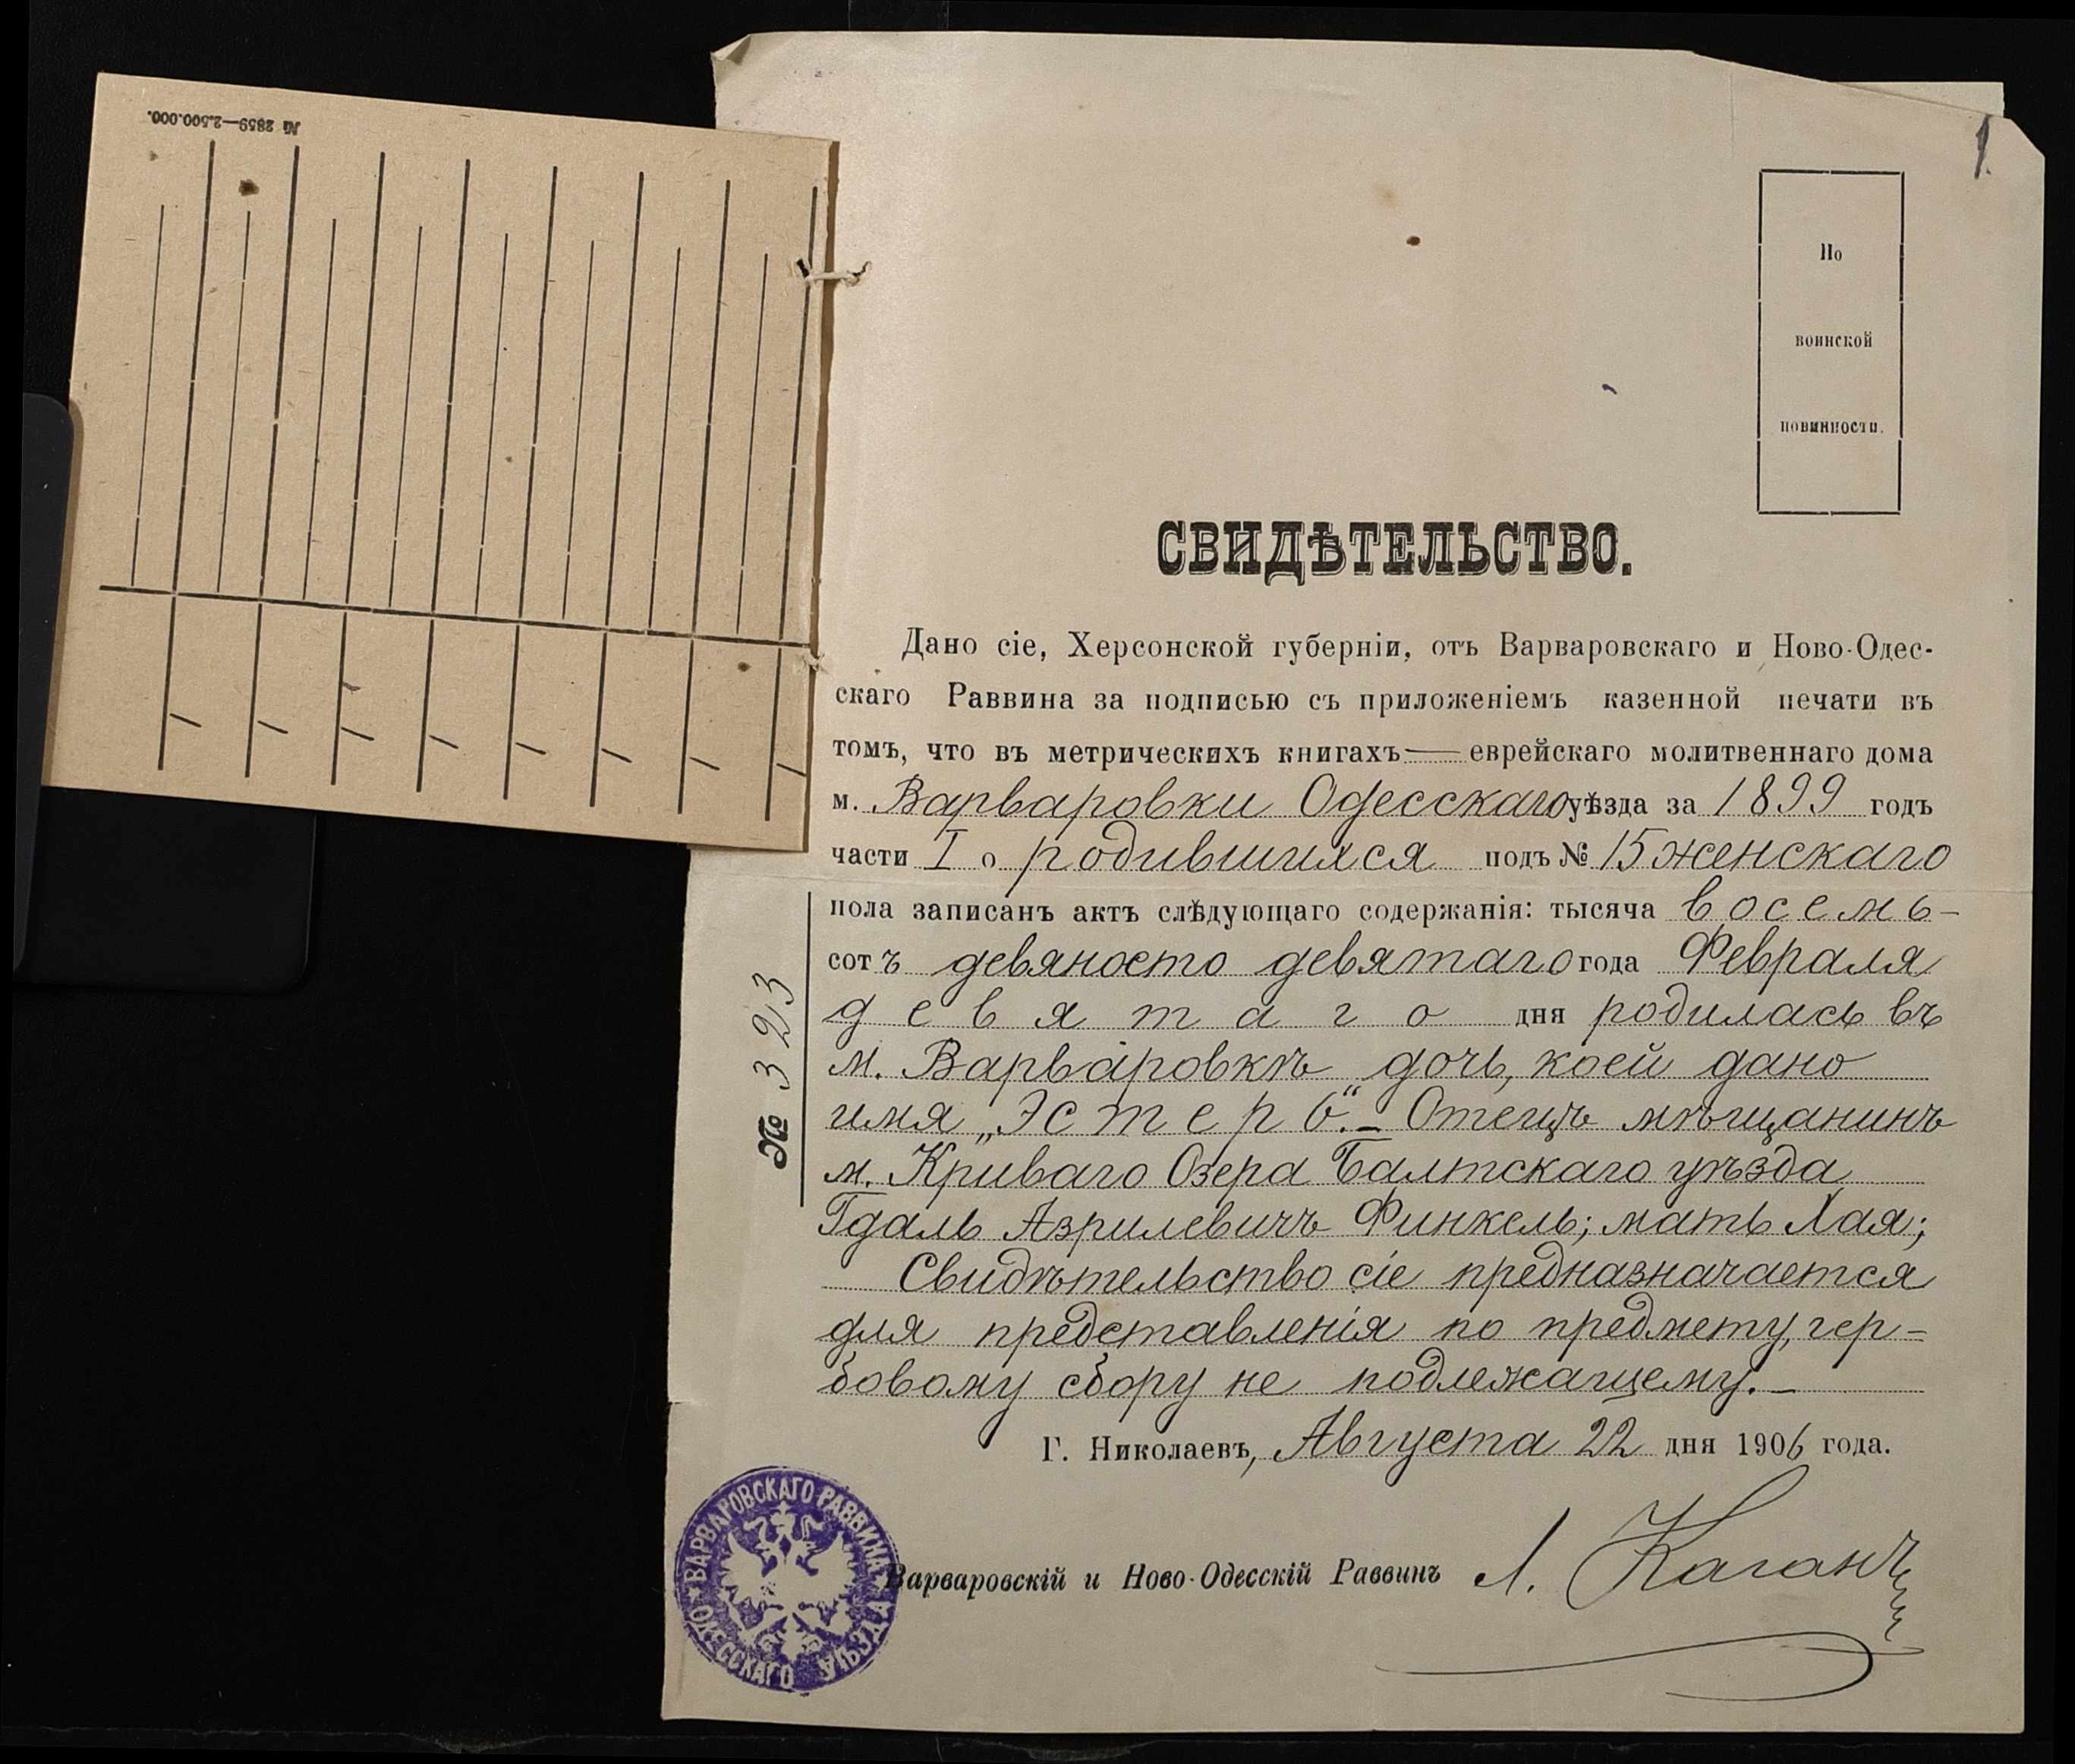 № 2859—2.500.000.
1.
По
воинской
повинности.
СВИДѢТЕЛЬСТВО.
Дано сіе, Херсонской губерніи, отъ Варваровскаго и Ново-Одес-
скаго Раввина за подписью съ приложеніемъ казенной печати въ
томъ, что въ метрическихъ книгахъ — еврейскаго молитвеннаго дома
м. Варваровки Одесскаго уѣзда за 1899 годъ
части I о родившихся подъ № 15 женскаго
пола записанъ актъ слѣдующаго содержанія: тысяча восемь-
сотъ девяносто девятаго года Февраля
девятаго дня родилась въ
м. Варваровкѣ дочь, коей дано
имя „Эстеръ“. – Отецъ мѣщанинъ
м. Криваго Озера Балтскаго уѣзда
Гдаль Азрилевичъ Финкель; мать Хая;
Свидѣтельство сіе предназначается
для представленія по предмету, гер-
бовому сбору не подлежащему. –
Г. Николаевъ, Августа 22 дня 1906 года.
№ 323
Варваровскій и Ново-Одесскій Раввинъ Л. Каганъ
ВАРВАРОВСКАГО РАВВИНА
ОДЕССКАГО УѢЗДА